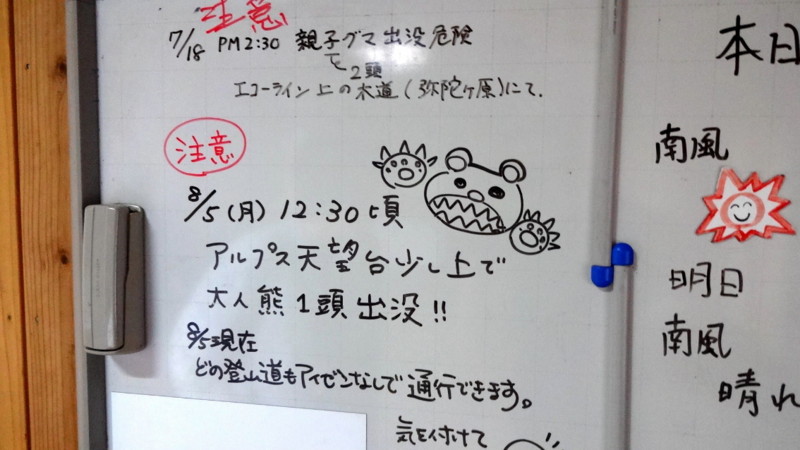 注意
7/18 PM2:30 親子グマ出没危険
で2頭
エコーライン上の木道(弥陀ヶ原)にて.
注意
8/5(月) 12:30頃
アルプス天望台少し上で
大人熊1頭出没!!
8/5現在
どの登山道もアイゼンなしで通行できます。
気を付けて
本日
南風
明日
南風
晴れ